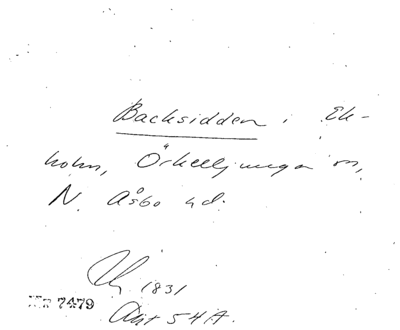 Backsidden i Ek-
holm, Örkelljunga sn,
N. Åsbo hd.
1831
Nr 7479
Akt 54A.